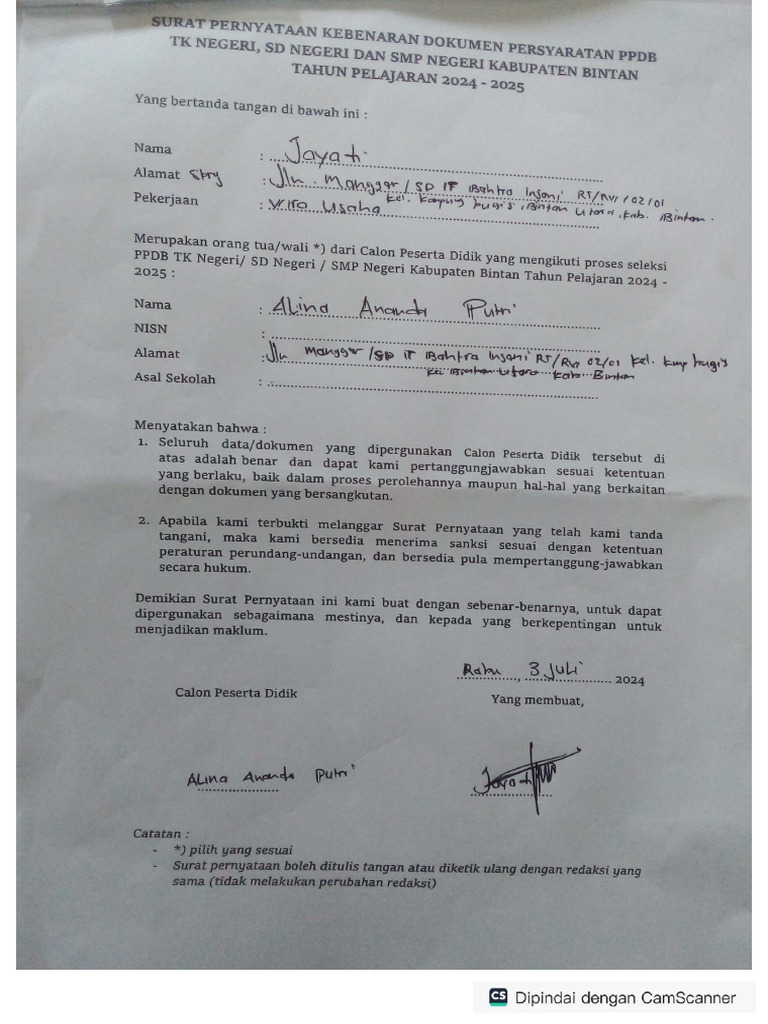 SURAT PERNYATAAN KEBENARAN DOKUMEN PERSYARATAN PPDB
TK NEGERI, SD NEGERI DAN SMP NEGERI KABUPATEN BINTAN
TAHUN PELAJARAN 2024 - 2025
Yang bertanda tangan di bawah ini :
Nama : Jayati
Alamat : Jln. Manggar / SD IT Bahtra Insani RT/RW 02/01
Kel. Kampung bugis, Bintan Utara, Kab. Bintan.
Pekerjaan : Wira Usaha
Merupakan orang tua/wali *) dari Calon Peserta Didik yang mengikuti proses seleksi
PPDB TK Negeri/ SD Negeri / SMP Negeri Kabupaten Bintan Tahun Pelajaran 2024 -
2025 :
Nama : Alina Ananda Putri
NISN :
Alamat : Jln Manggar /SD IT Bahtra Insani RT/RW 02/01 Kel. kmp bugis
Kec Bintan Utara Kab. Bintan
Asal Sekolah :
Menyatakan bahwa :
1. Seluruh data/dokumen yang dipergunakan Calon Peserta Didik tersebut di
atas adalah benar dan dapat kami pertanggungjawabkan sesuai ketentuan
yang berlaku, baik dalam proses perolehannya maupun hal-hal yang berkaitan
dengan dokumen yang bersangkutan.
2. Apabila kami terbukti melanggar Surat Pernyataan yang telah kami tanda
tangani, maka kami bersedia menerima sanksi sesuai dengan ketentuan
peraturan perundang-undangan, dan bersedia pula mempertanggung-jawabkan
secara hukum.
Demikian Surat Pernyataan ini kami buat dengan sebenar-benarnya, untuk dapat
dipergunakan sebagaimana mestinya, dan kepada yang berkepentingan untuk
menjadikan maklum.
Rabu, 3 Juli 2024
Calon Peserta Didik
Yang membuat,
Alina Ananda Putri
Jayati
Catatan :
- *) pilih yang sesuai
- Surat pernyataan boleh ditulis tangan atau diketik ulang dengan redaksi yang
sama (tidak melakukan perubahan redaksi)
CS Dipindai dengan CamScanner